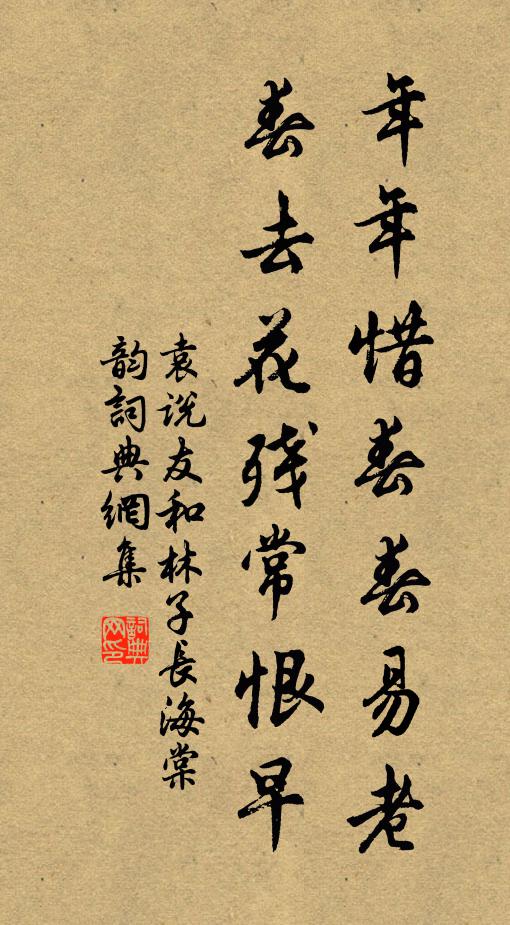 年年惜春春易老
春去花残常恨早
袁说友和林子長海棠
韵詞典網集
詞典网印